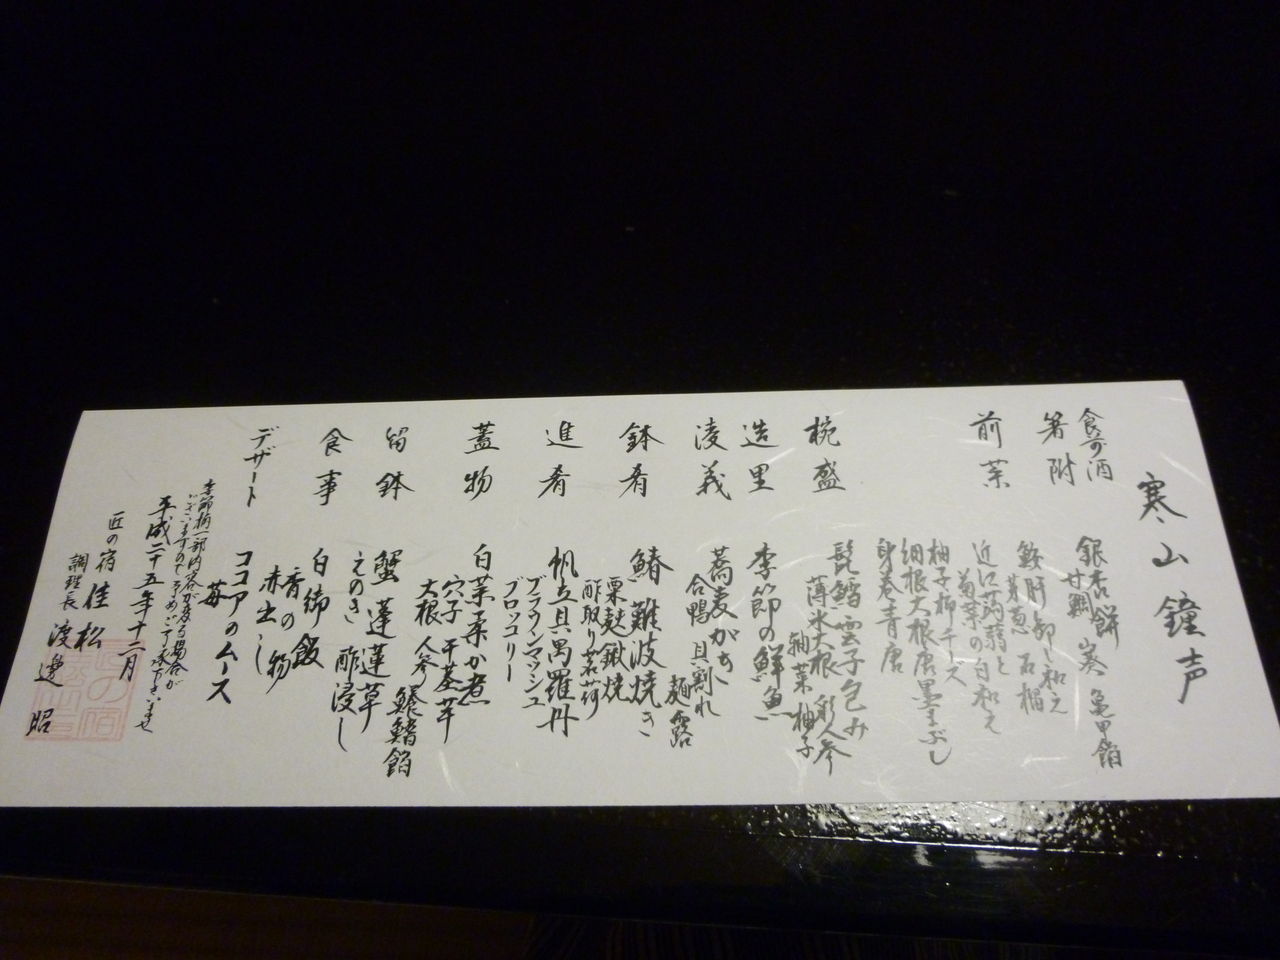 寒山鐘声
食前酒
箸附
銀杏餅 甘鯛
亀甲餡
鮟肝 卸し和え
芽葱 石榴
前菜
近江蒟蒻と
菊菜の白和え
柚子柿チーズ
細根大根唐墨まぶし
身巻青唐
椀盛
髭鱈雲子包み
薄氷大根 彩人参
軸菜 柚子
造里
季節の鮮魚
凌義
蕎麦がき 麺露
合鴨 貝割れ
鉢肴
鰆難波焼き
粟麩鍬焼
酢取り茗荷
進肴
帆立貝禺羅丹
ブラウンマッシュ
ブロッコリー
蓋物
白菜柔か煮
穴子 干茎芋
大根 人参
餡
留鉢
蟹 菠薐草
えのき 酢浸し
食事
白御飯
香の物
赤出し
デザート
苺
ココアのムース
季節柄一部内容が変る場合が
ございますので予めご了承下さいませ
平成二十五年十二月
匠の宿 佳松
調理長 渡邊 昭